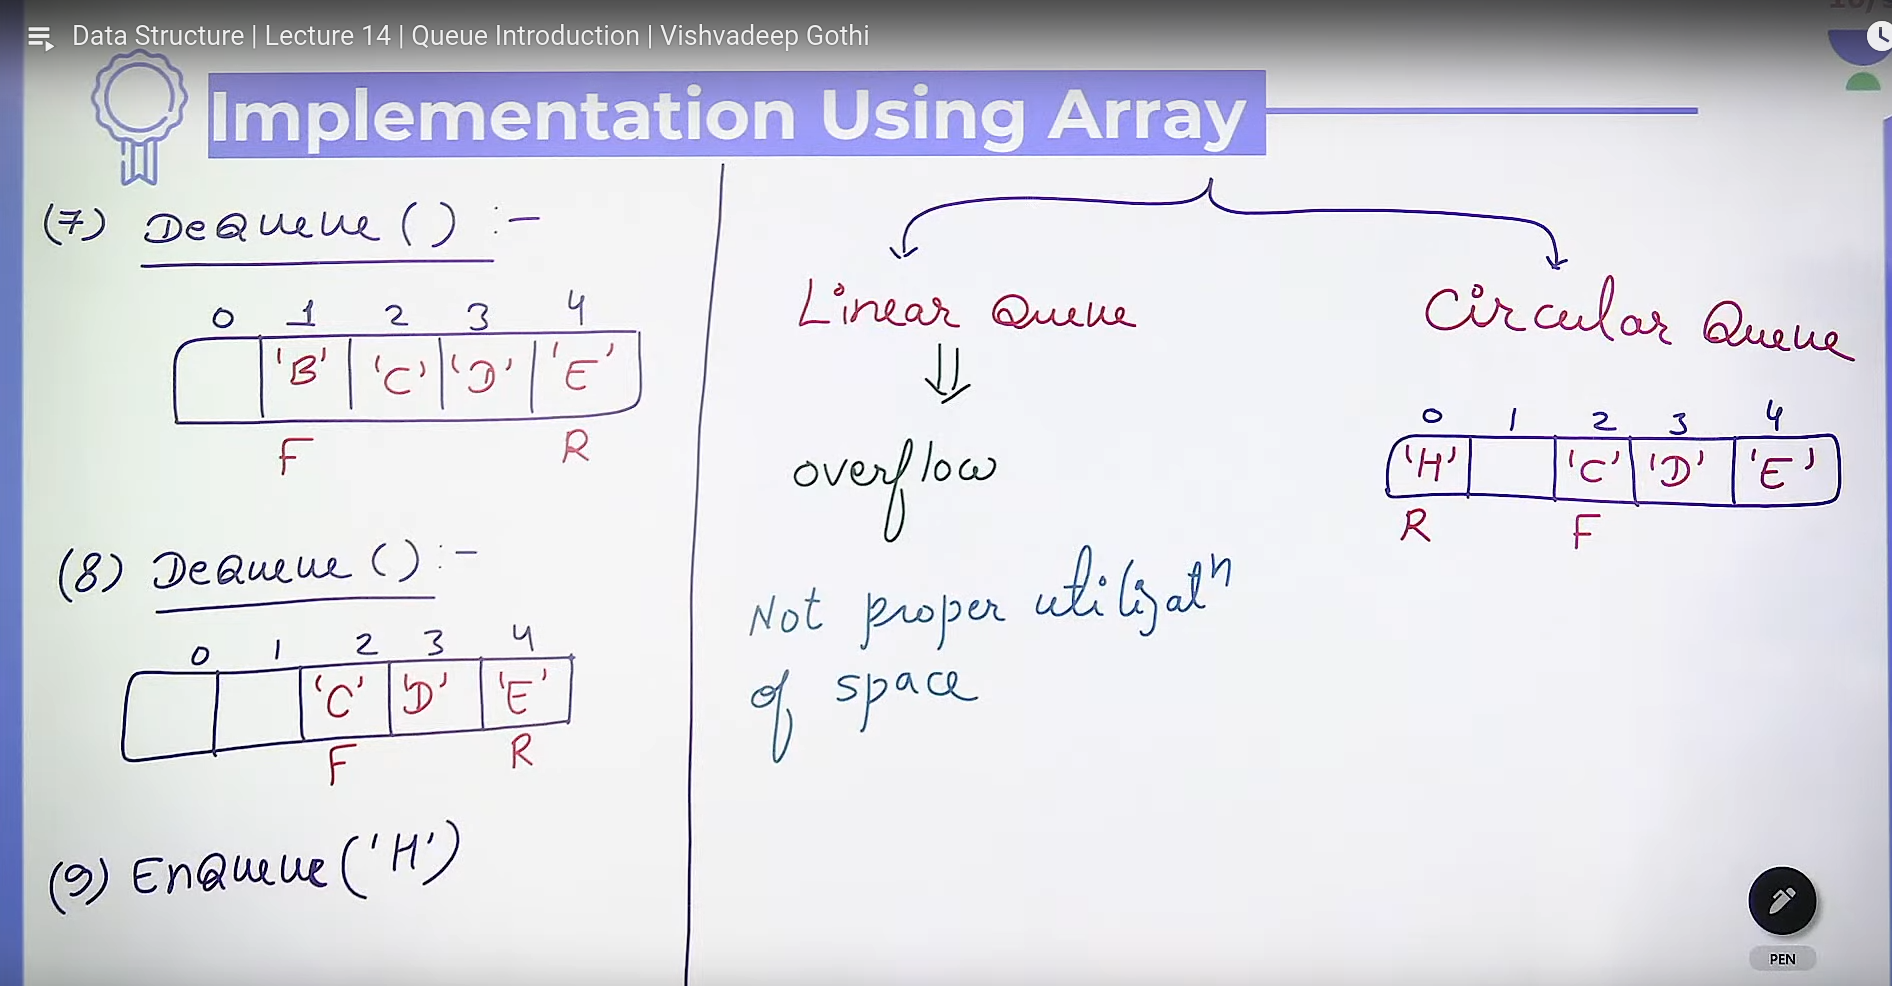 Data Structure | Lecture 14 | Queue Introduction | Vishvadeep Gothi
Implementation Using Array
(7) DeQueue ( ) :-
0 1 2 3 4
'B' 'C' 'D' 'E'
F R
(8) DeQueue ( ) :-
0 1 2 3 4
'C' 'D' 'E'
F R
(9) EnQueue ('H')
Linear Queue
overflow
Not proper utilizatⁿ
of space
Circular Queue
0 1 2 3 4
'H' 'C' 'D' 'E'
R F
PEN